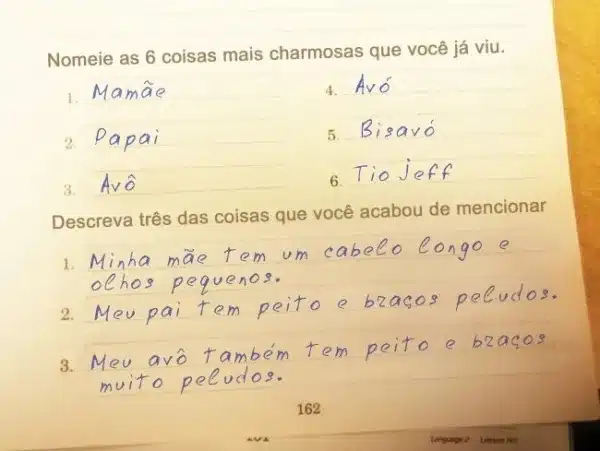 Nomeie as 6 coisas mais charmosas que você já viu.
1. Mamãe
4. Avó
2. Papai
5. Bisavó
3. Avô
6. Tio Jeff
Descreva três das coisas que você acabou de mencionar
1. Minha mãe tem um cabelo longo e
olhos pequenos.
2. Meu pai tem peito e braços peludos.
3. Meu avô também tem peito e braços
muito peludos.
162
Language 2